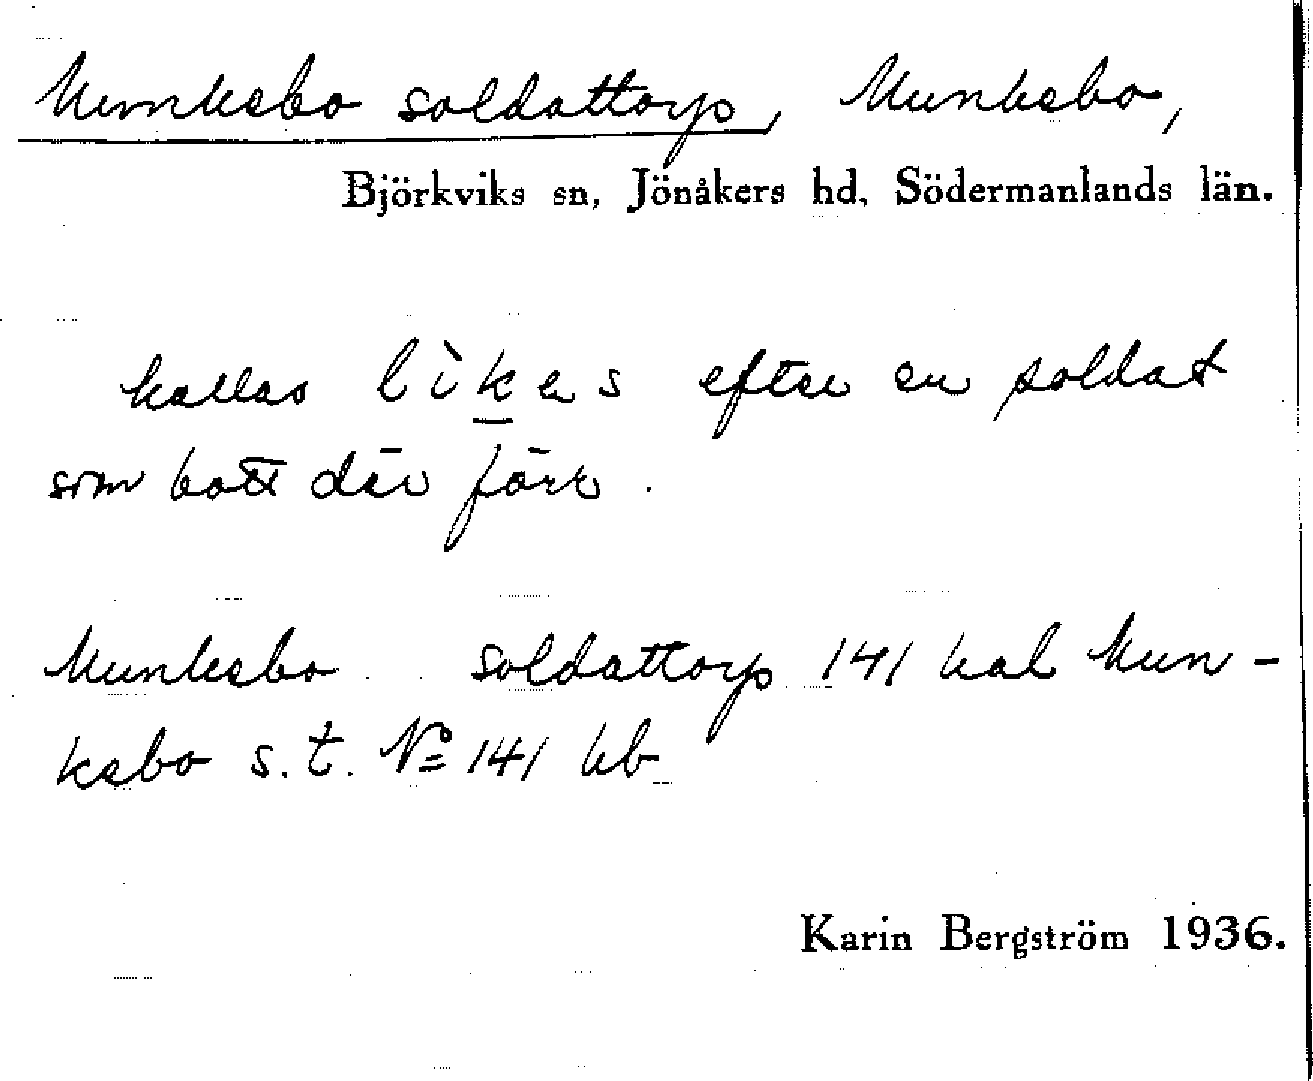 Munkebo soldattorp, Munkebo,
Björkviks sn, Jönåkers hd, Södermanlands län.
kallas lìkas efter en soldat
som bott där förr.
Munkebo soldattorp 141 hal Mun-
kebo s.t. № 141 kb
Karin Bergström 1936.